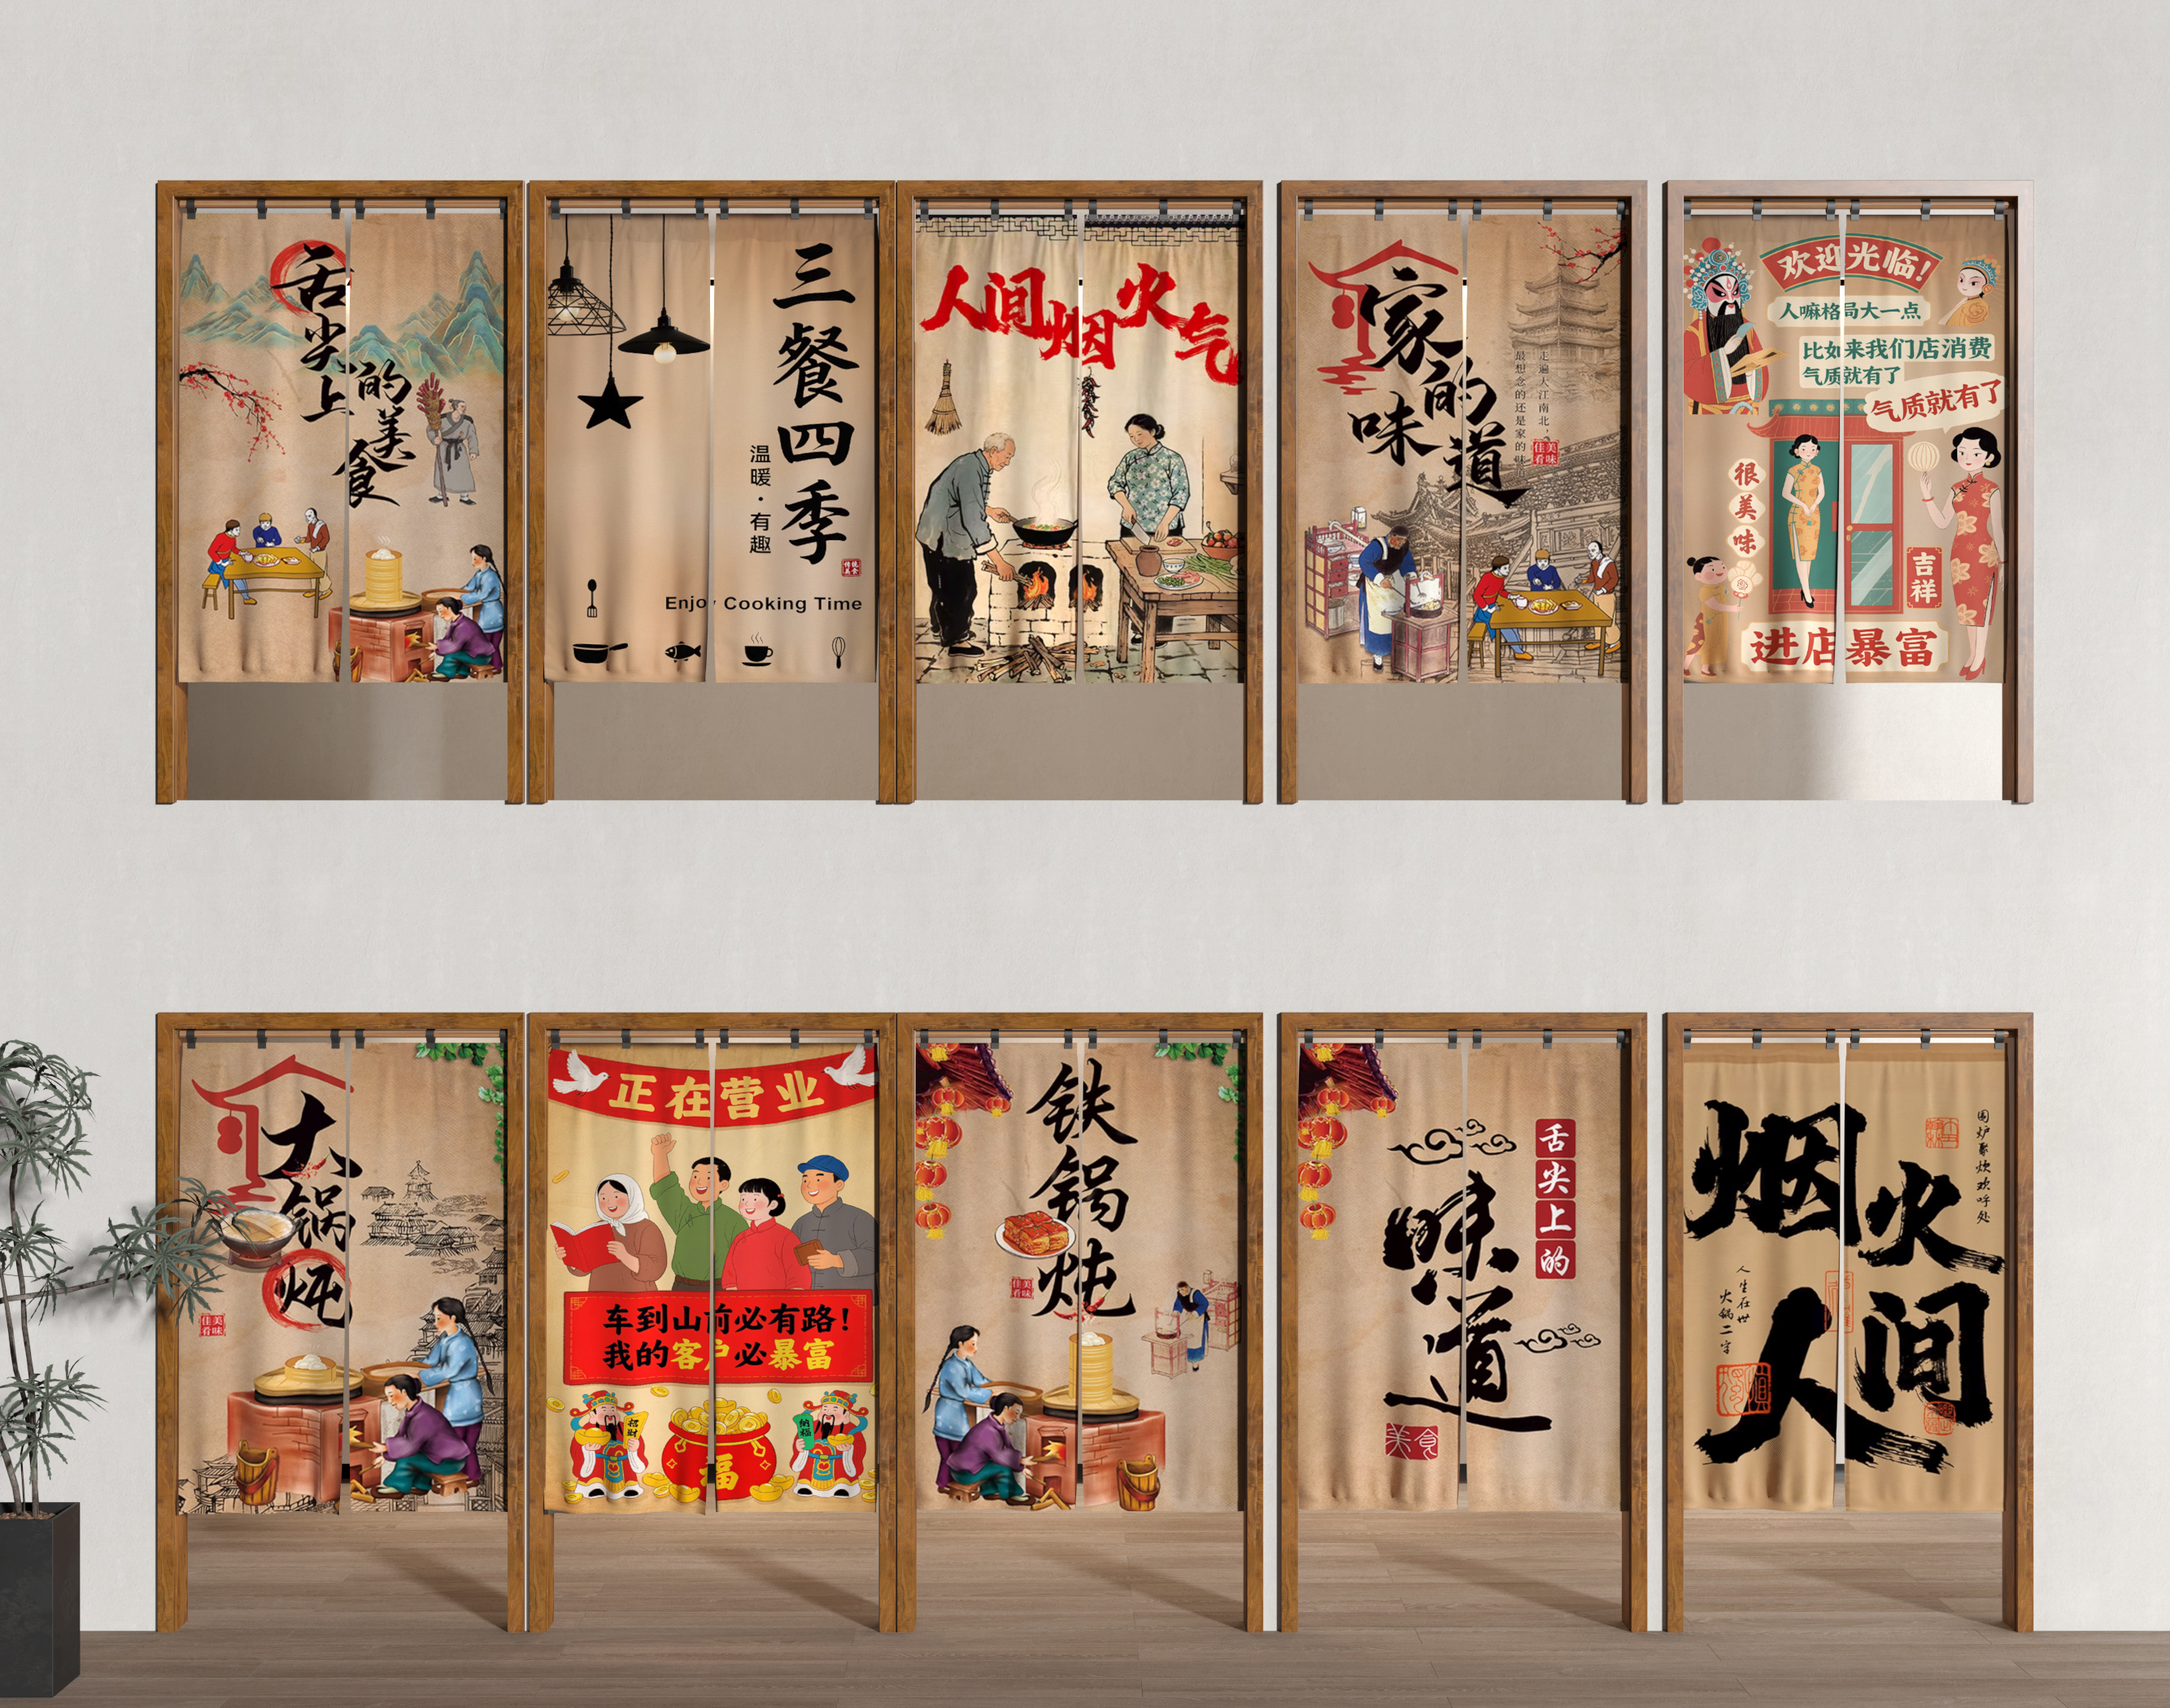 舌尖上
的美食
三餐四季
温暖·有趣
传统美食
Enjoy Cooking Time
人间烟火气
家的味道
走遍大江南北，
最想念的还是家的味
佳肴美味
欢迎光临！
人嘛格局大一点
比如来我们店消费
气质就有了
气质就有了
很美味
吉祥
进店暴富
大锅炖
佳肴美味
正在营业
车到山前必有路！
我的客户必暴富
招财
纳福
福
铁锅炖
佳肴美味
舌尖上的
味道
美食
烟火
人间
围炉聚炊欢呼处
人生在世
火锅二字